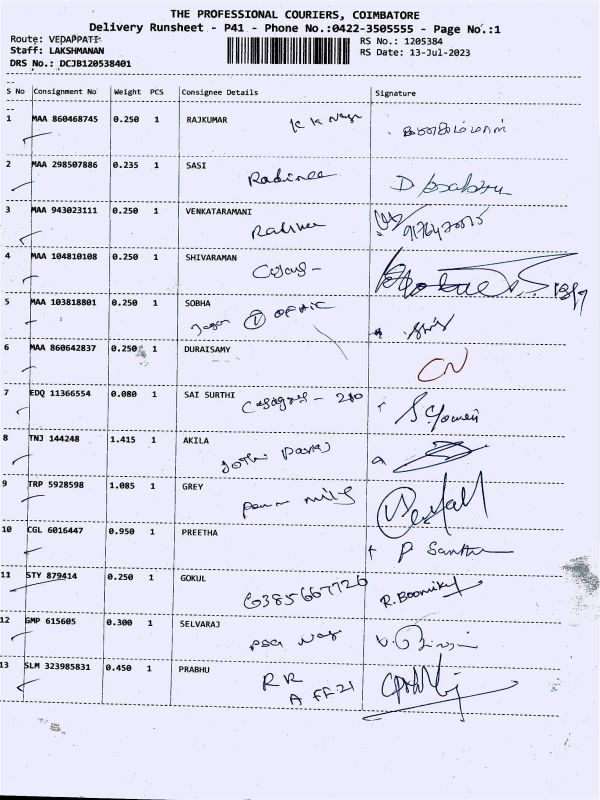 THE PROFESSIONAL COURIERS, COIMBATORE
Delivery Runsheet - P41 - Phone No.:0422-3505555 - Page No.:1
Route: VEDAPPATI
RS No.: 1205384
Staff: LAKSHMANAN
RS Date: 13-Jul-2023
DRS No.: DCJB120538401
S No Consignment No Weight PCS Consignee Details Signature
1 MAA 860468745 0.250 1 RAJKUMAR K K Nagar
2 MAA 298507886 0.235 1 SASI
3 MAA 943023111 0.250 1 VENKATARAMANI
4 MAA 104810108 0.250 1 SHIVARAMAN
5 MAA 103818801 0.250 1 SOBHA
6 MAA 860642837 0.250 1 DURAISAMY CN
7 EDQ 11366554 0.080 1 SAI SURTHI
8 TNJ 144248 1.415 1 AKILA
9 TRP 5928598 1.085 1 GREY
10 CGL 6016447 0.950 1 PREETHA
11 STY 879414 0.250 1 GOKUL 6385667726 R. Boomika
12 GMP 615605 0.300 1 SELVARAJ
13 SLM 323985831 0.450 1 PRABHU R R
A FF-21